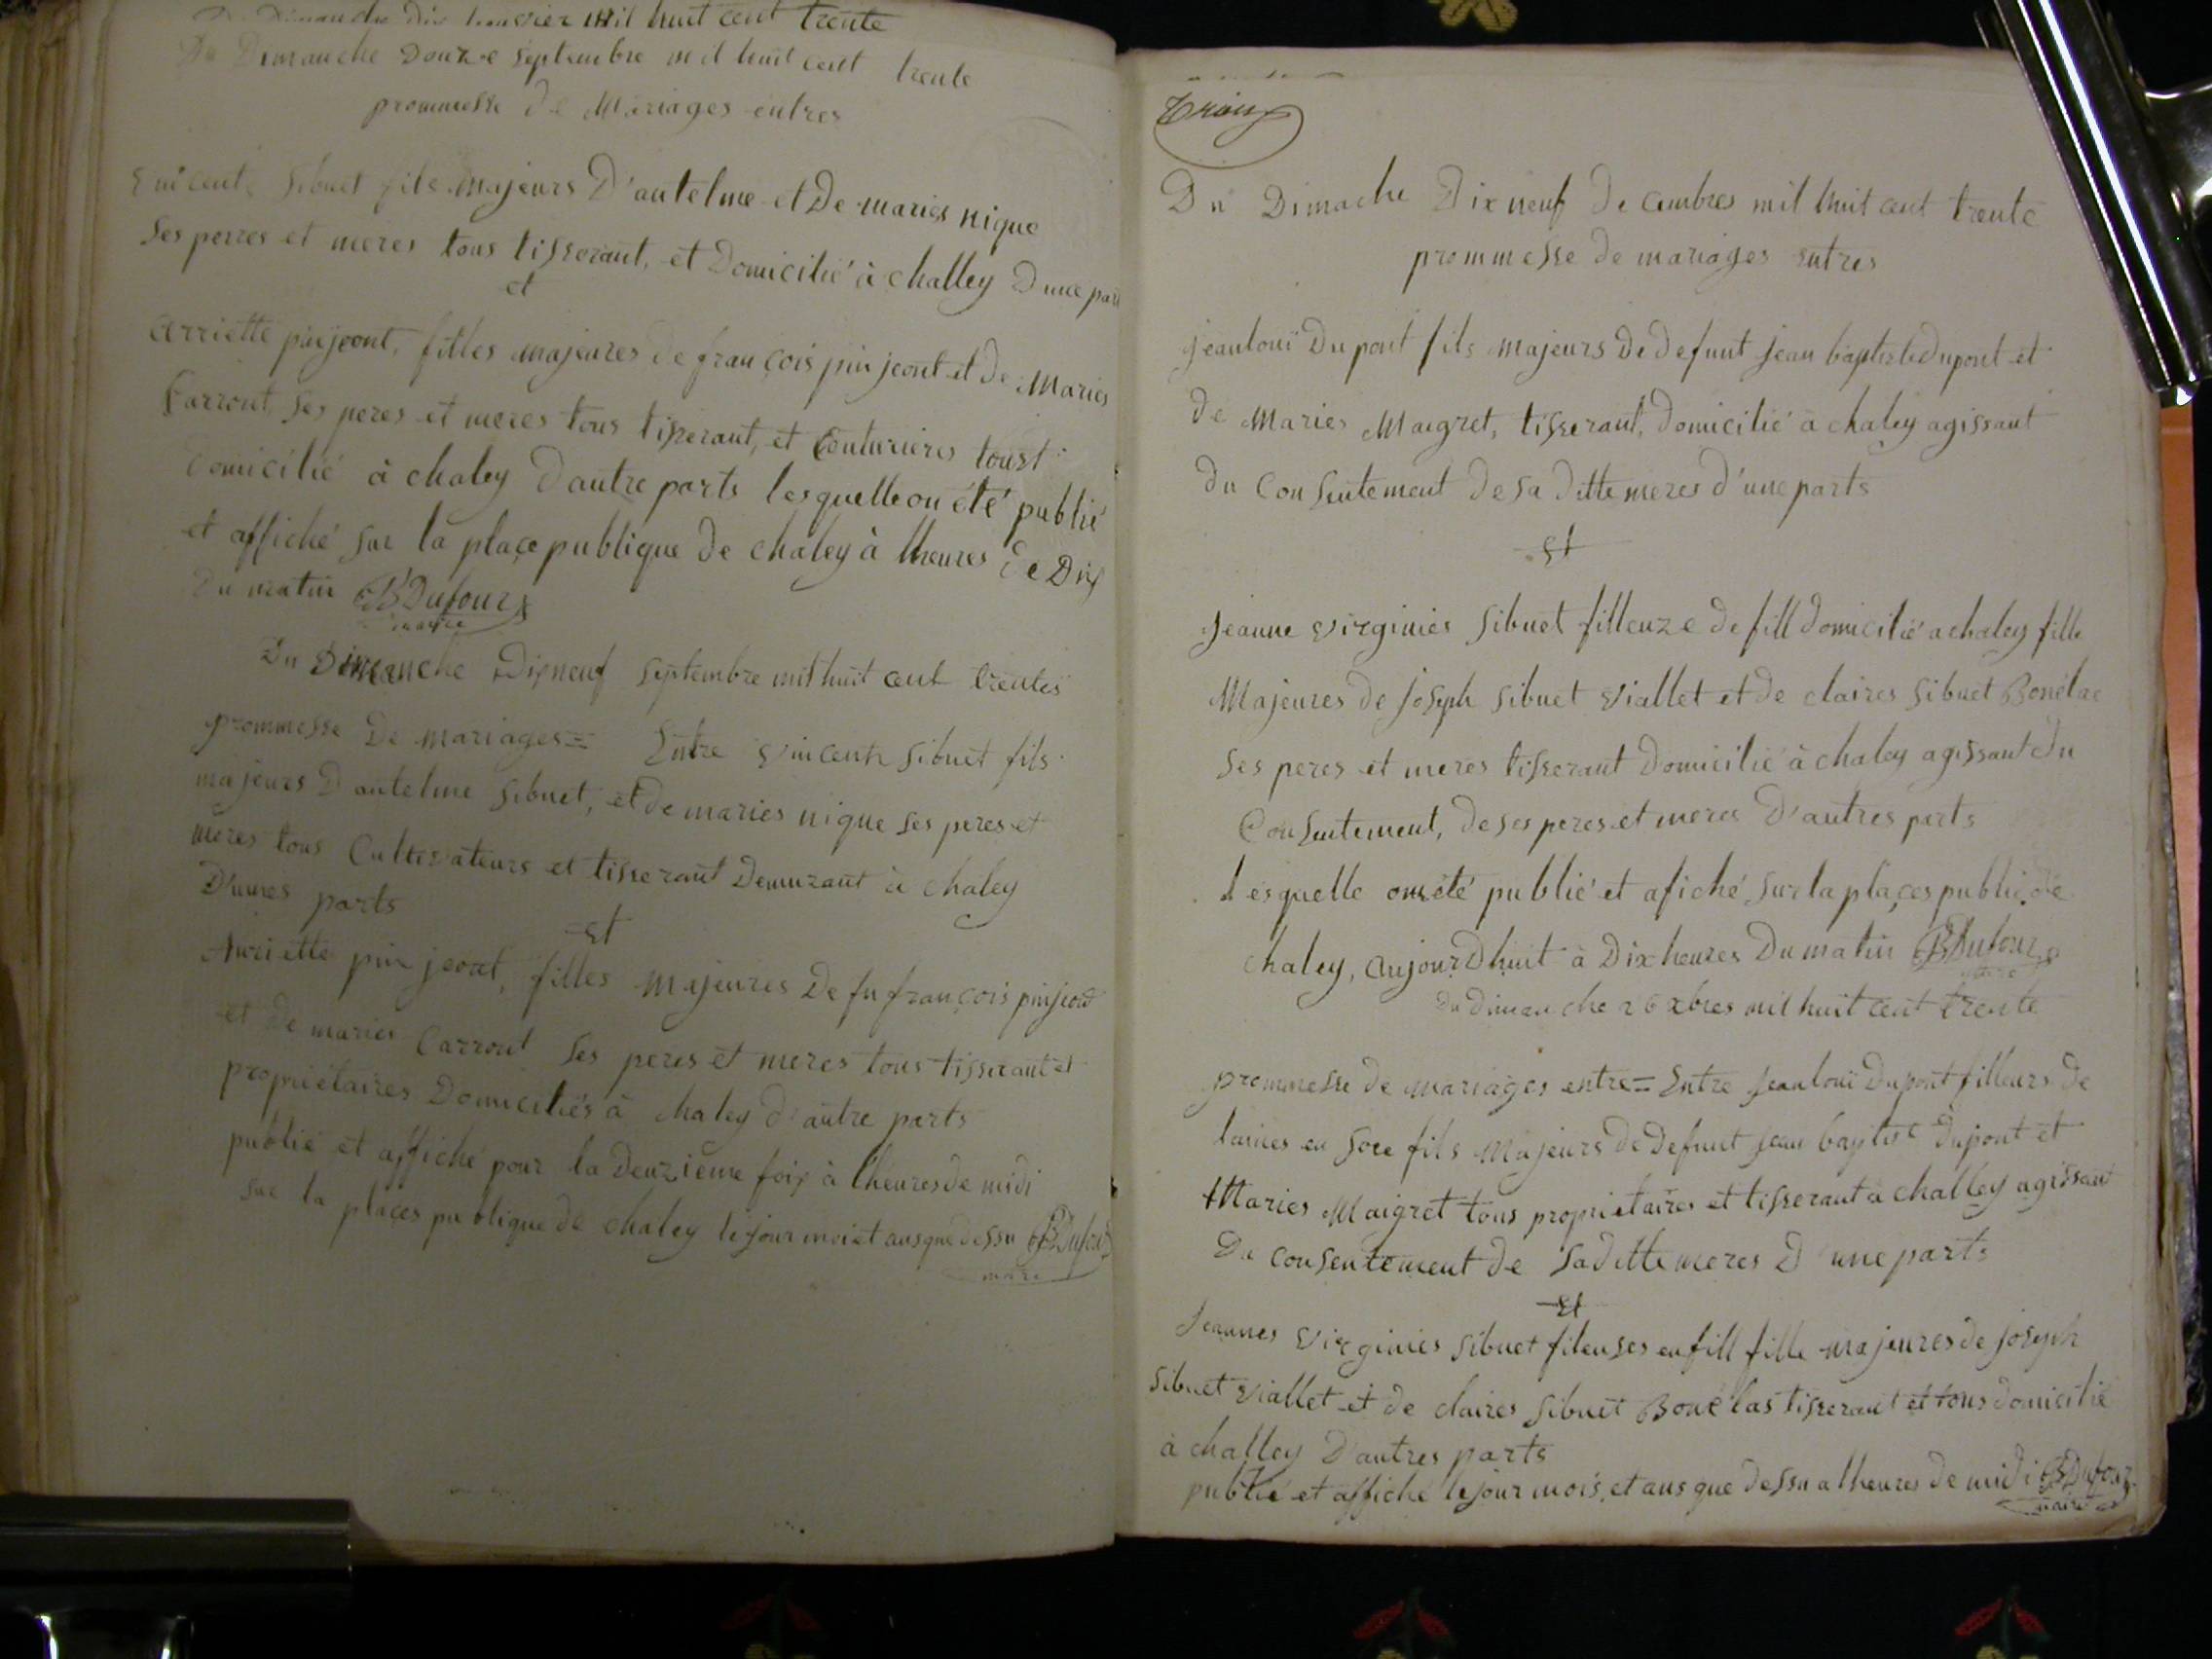 Du Dimanche Dix Janvier mil huit cent trente
Du Dimanche Douze septembre mil huit cent trente
prommesse De Mariages entres
Vincent Sibuet fils Majeurs D'antelme et De maries nique
Ses perres et meres tous tisserant, et Domicilié à challey Dune part
et
Arriette pinjeont, filles majeures de françois pinjeont et De Maries
Carront, Ses peres et meres tous tisserant, et Couturieres toust
Domicilié à chaley Dautre parts lesquelle on été publié
et affiché sur la plaçe publique De chaley à lheures De Dix
Du matin B Dufour
maire
Du Dimanche Dixneuf Septembre mil huit cent trentes
prommesse De mariages = Entre Vincent Sibuet fils
majeurs D antelme Sibuet, et De maries nique Ses peres et
meres tous Cultivateurs et tisserant Demurant à chaley
D'unes parts
Et
Anriette pin jeont, filles Majeures De fu françois pinjeont
et De maries Carront Ses peres et meres tous tisserant et
proprietaires Domiciliés à chaley D'autre parts
publié et affiché pour la Deuzième fois à lheures de midi
sur la plaçes publique de chaley le jour moi et ans que dessu B Dufour
maire
Du Dimache Dix neuf De cembres mil huit cent trente
prommesse De mariages Entres
jeanloui Dupont fils majeurs De Defunt jean baptiste Dupont et
De Maries Maigret, tisserant, Domicilié à chaley agissant
Du Consentement De Sa Ditte meres d'une parts
Et
Jeanne Virginies Sibuet filleuze De fill Domicilié a chaley fille
Majeures De Joseph Sibuet Viallet et de claires Sibuet Bonélas
Ses peres et meres tisserant Domicilié à chaley agissant Du
Consentement, De Ses peres et meres D'autres parts
Lesquelle on été publié et afiché Sur la plaçes public de
chaley, aujour Dhuit à Dix heures Du matin B Dufour
maire
Du Dimanche 26 xbres mil huit cent trente
prommesse De mariages entre = Entre Jeanloui Dupont filleurs De
laines en Soie fils Majeurs De Defunt Jean baptiste Dupont et
Maries Maigret tous proprietaires et tisserant à challey agissant
Du consentement De Saditte meres D'une parts
Et
Jeannes Virginies Sibuet fileuses en fill fille majeures de joseph
Sibuet Viallet et De claires Sibuet Bonélas tisserant et tous domicilié
à challey D'autres parts
publié et affiché le jour mois, et ans que Dessu a lheures de midi B Dufour
maire